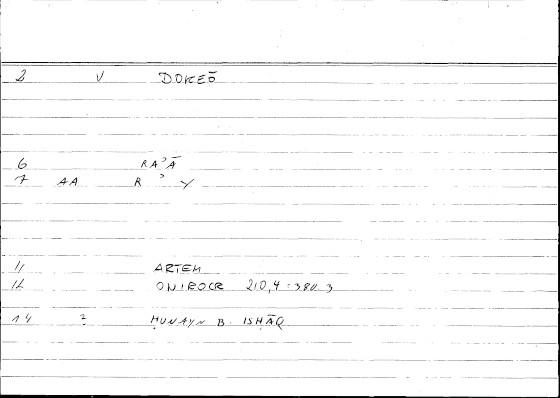 2 V DOKEŌ
6 RAʾĀ
7 AA R ʾ Y
11 ARTEM
12 ONIROCR 210,4 : 380.3
14 2 ḤUNAYN B. ISḤĀQ